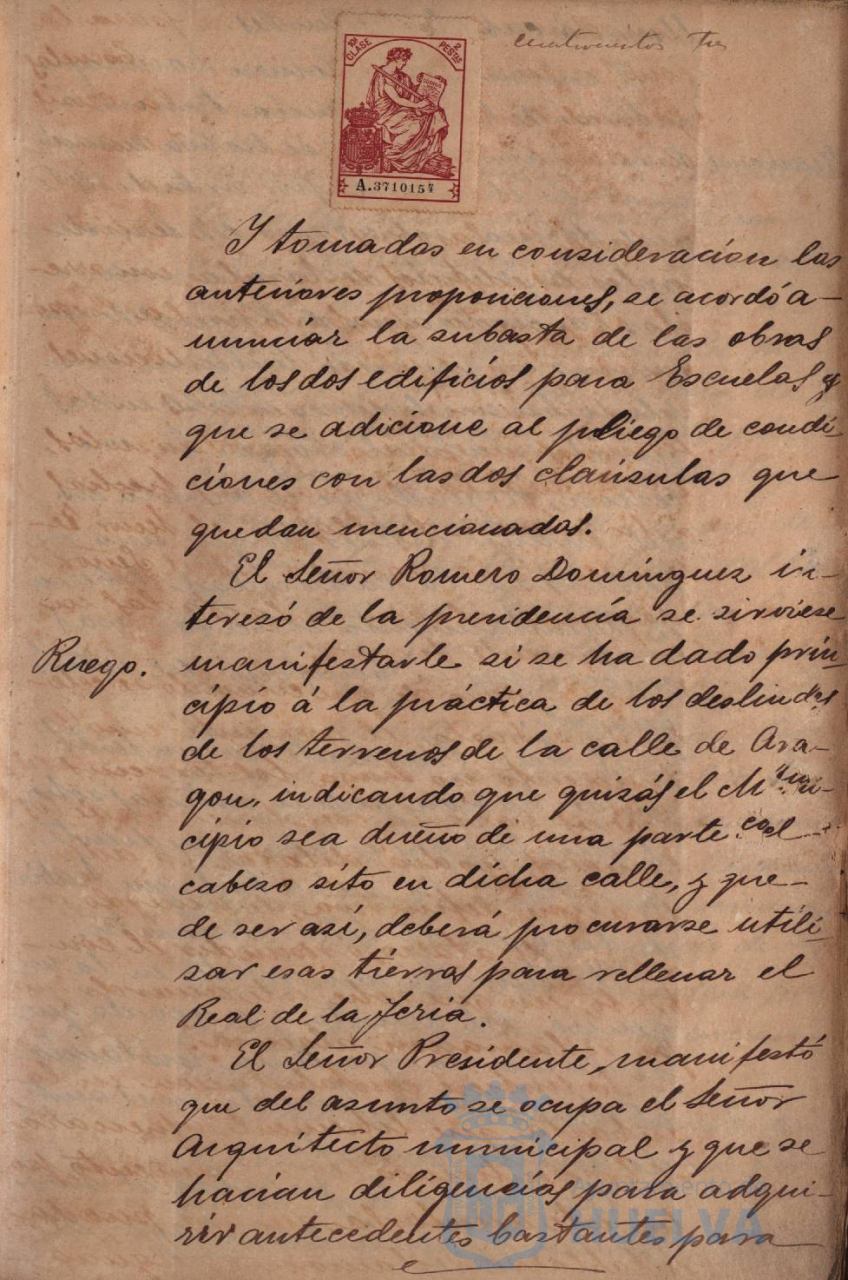 cuatrocientos tres
10ª CLASE
2 PESETAS
A.3710157
Y tomadas en consideración las
anteriores proposiciones, se acordó a-
nunciar la subasta de las obras
de los dos edificios para Escuelas y
que se adicione al pliego de condi
ciones con las dos claúsulas que
quedan mencionadas.
El Señor Romero Domínguez in-
teresó de la presidencia se sirviese
Ruego.
manifestarle si se ha dado prin-
cipio á la práctica de los deslindes
de los terrenos de la calle de Ara-
gon, indicando que quizás el Muni-
cipio sea dueño de una parte del
cabezo sito en dicha calle, y que-
de ser así, deberá procurarse utili-
zar esas tierras para rellenar el
Real de la Feria.
El Señor Presidente, manifestó
que del asunto se ocupa el Señor
Arquitecto municipal y que se
hacian diligencias para adqui-
rir antecedentes bastantes para
HUELVA